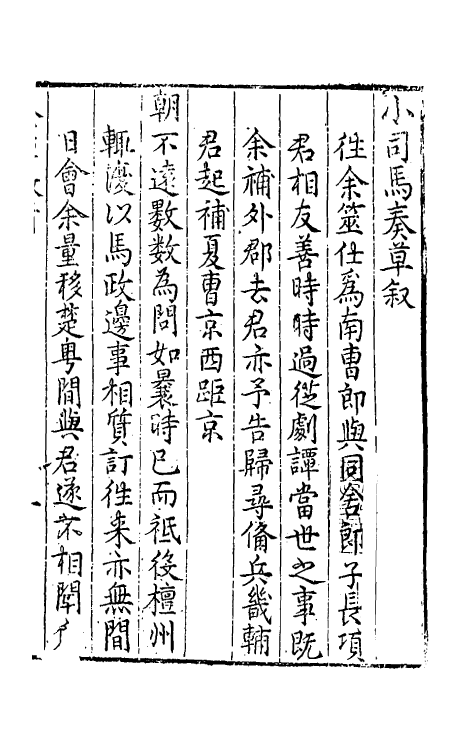 小司馬奏草叙
徃余筮仕爲南曹郎與同舍郎子長項
君相友善時時過從劇譚當世之事既
余補外郡去君亦予告歸尋備兵畿輔
君起補夏曹京西距京
朝不遠數數為問如曩時已而祗役檀州
輒瀀以馬政邊事相質訂徃来亦無間
日會余量移楚粤間與君遂不相聞